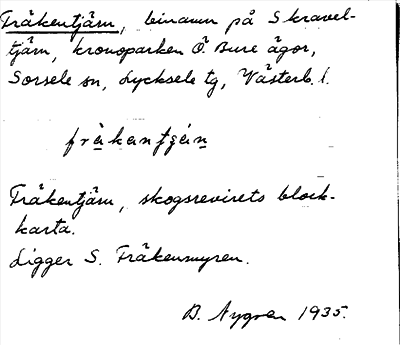 Fräkentjärn, binamn på Skravel-
tjärn, kronoparken Ö. Bure ägor,
Sorsele sn, Lycksele tg, Västerb. l.
fràkantjạ́n
Fräkentjärn, skogsrevirets block-
karta.
Ligger S. Fräkenmyren.
B. Nygren 1935.